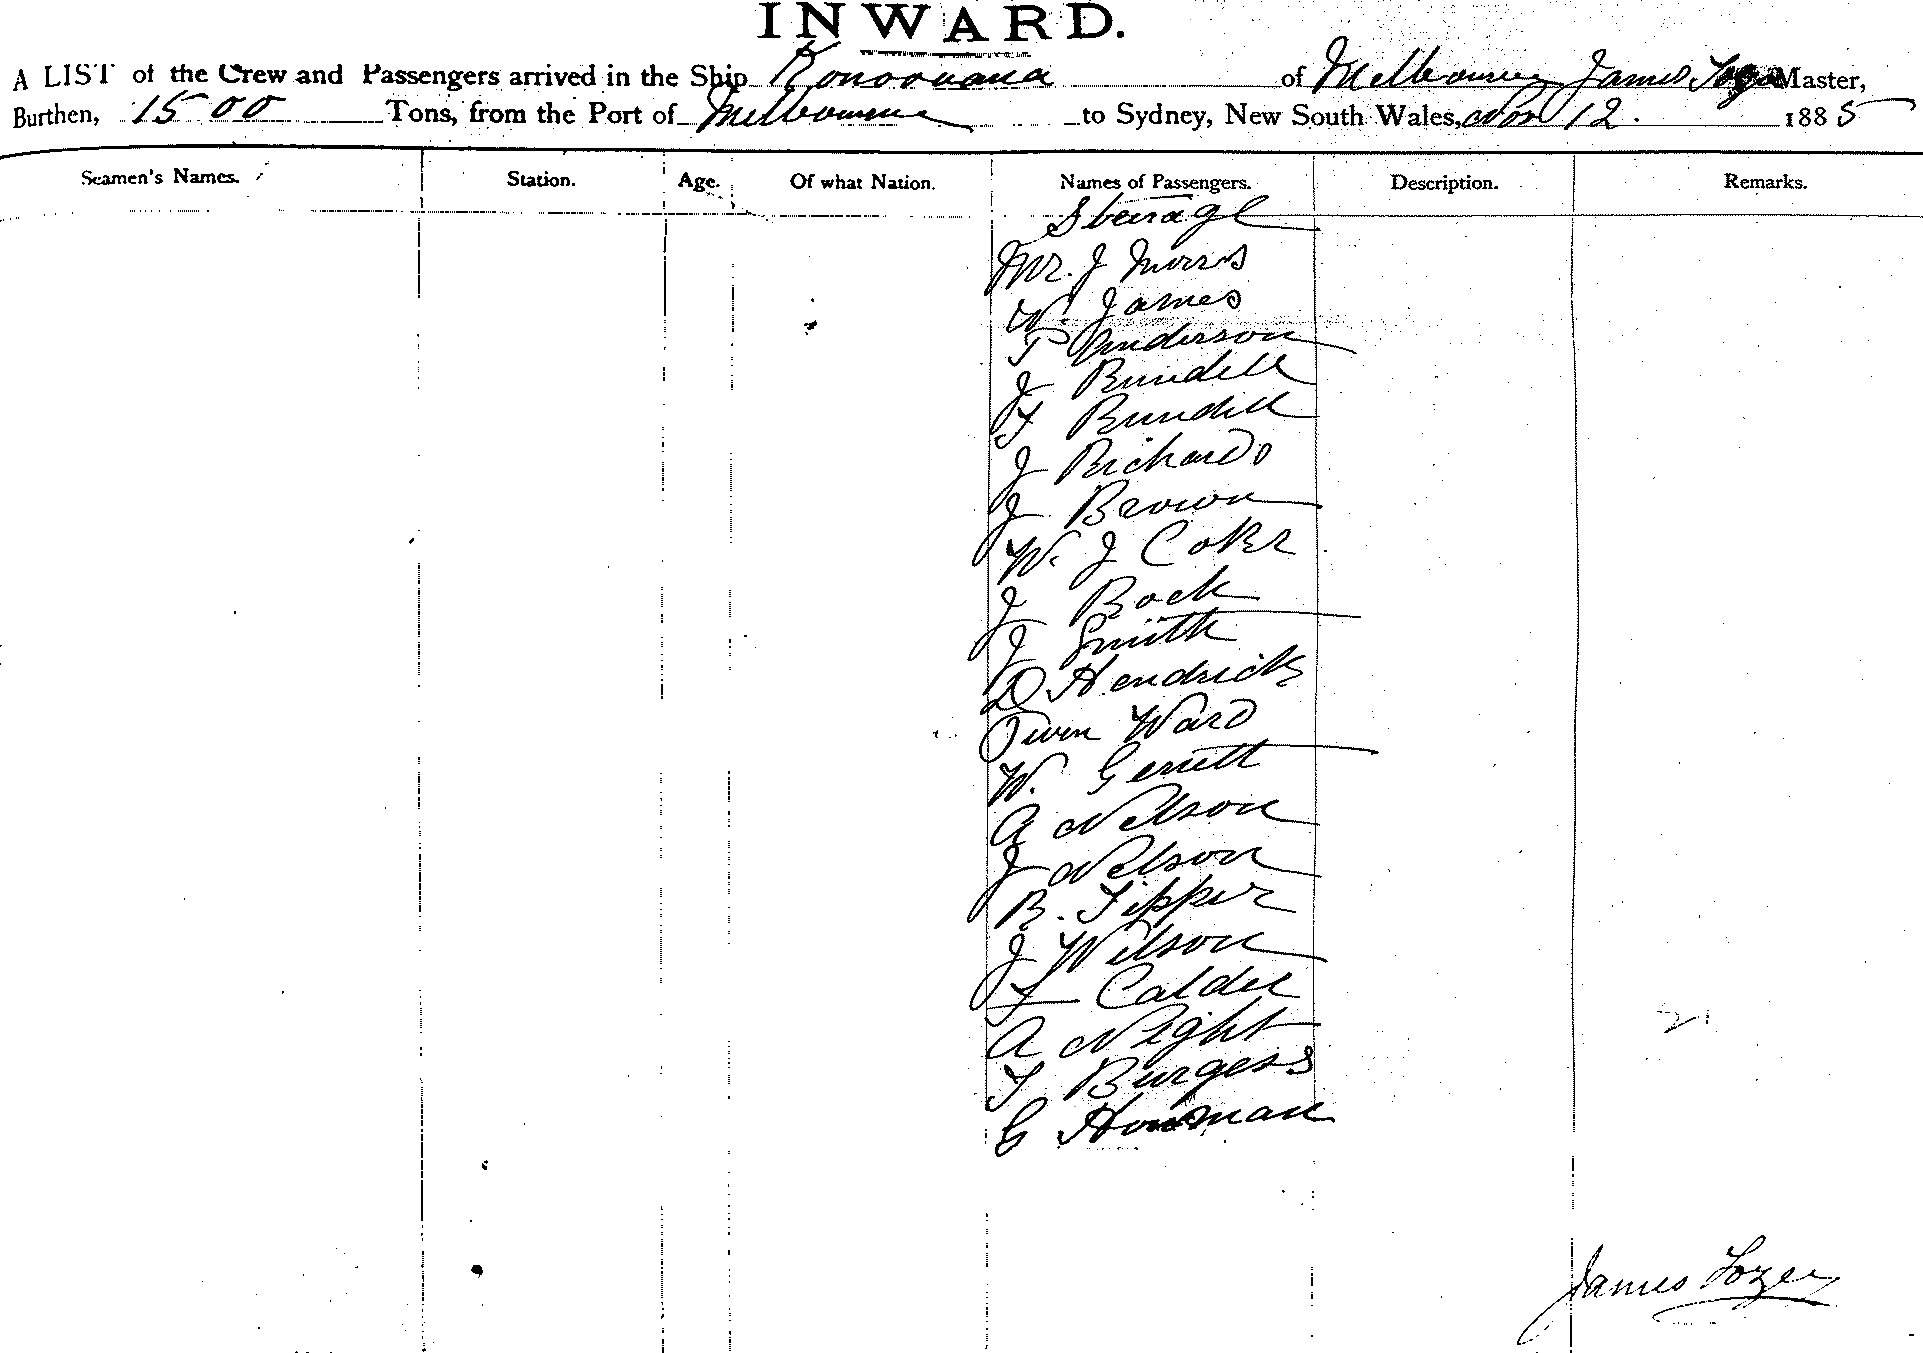 INWARD.
A LIST of the Crew and Passengers arrived in the Ship Konoowana of Melbourne, James Tozer Master,
Burthen, 1500 Tons, from the Port of Melbourne to Sydney, New South Wales, Nov 12. 1885
Seamen's Names. Station. Age. Of what Nation. Names of Passengers. Description. Remarks.
Steerage
Mr. J Morris
W. James
P Anderson
J Rundell
F Rundell
J Richards
J Brown
W. J Coker
J Bock
J Smith
D Hendricks
Owen Ward
W. Gerrett
A Nelson
J Nelson
B. Tipper
J Wilson
F Calder
A Neight
F Burgess
G Howman
21
James Tozer